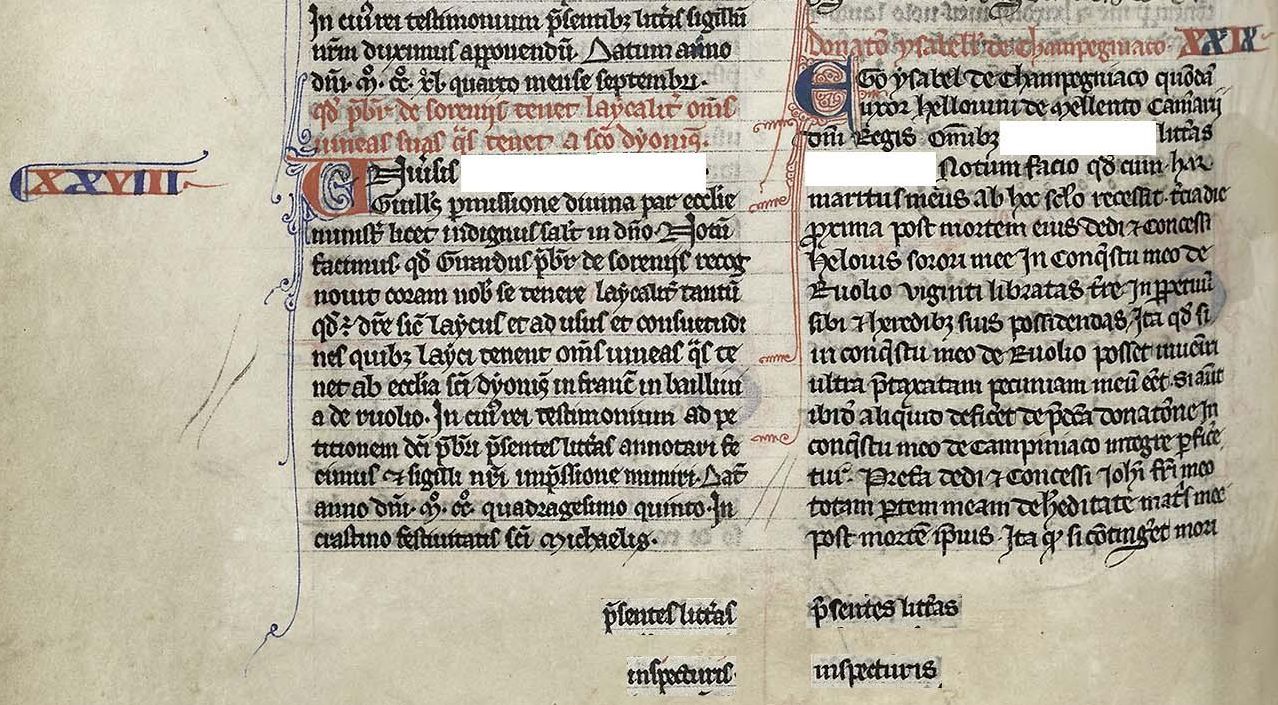 In cui' rei testimonium p̃sentibꝫ litt̃is sigillũ
nr̃m duximus apponendũ. Datum anno
dñi. M̊. cc̊. xl̊. quarto mense septembri.
qđ p̃br de sorenijs tenet laycalit̃ om̃s
uineas suas q̃s tenet a sc̃o dyonis̃.
XXVIII
Niuꝰsis
Guill's pmissione diuina pat ecclie
ministr̃ licet indignus salt̃ in dño. Notũ
facimus. qđ Girardus p̃br de sorenijs recog
nouit coram nob̃ se tenere laycalit̃ tantũ
qđ ⁊ dr̃e sic̃ laycus et ad usus et consuetudi
nes quibꝫ layci tenent om̃s uineas q̃s te
net ab ecclia sc̃i dyonis̃ in franc̃ in bailliui
a de ruolio. In cui' rei testimonium ad pe
titionem dc̃i p̃bri p̃sentes litt̃as annotari fe
cimus ⁊ sigilli nr̃i imp̃ssione muniri. Dat̃
anno dñi. M̊. cc̊. quadragesimo quinto. In
crastino festiuitatis sc̃i Michaelis.
p̃sentes litt̃as
inspecturis.
Donatõ ysabell' de Champegniaco. XXIX
EGo ysabel de Champegniaco quõdã
uxor hellouini de Mellento Cam̃arij
dñi Regis Om̃ibꝫ litt̃as
Notum facio qđ cum har̃
maritus meus ab hoc sclo recessit. t̃cia die
proxima post mortem eius dedi ⁊ concessi
Helouis sorori mee In Conq̃stu meo de
Ruolio viginti libratas tr̃e In ꝑpetuũ
sibi ⁊ heredibꝫ suis possidendas. Ita qđ si
in conq̃stu meo de Ruolio posset inueniri
ultra p̃taxatam pecuniam meũ eẽt. Si aũt
ibiđ aliquid deficet de p̃dc̃a donatõne In
conq̃stu meo de Campiniaco integre ꝑfice
tur̃. Prefa dedi ⁊ Concessi Ioh̃i fr̃i meo
totam ꝑtem meam de h̃editate mat's mee
post mortẽ ip̃ius. Ita q si cõting̃et mori
p̃sentes litt̃as
inspecturis